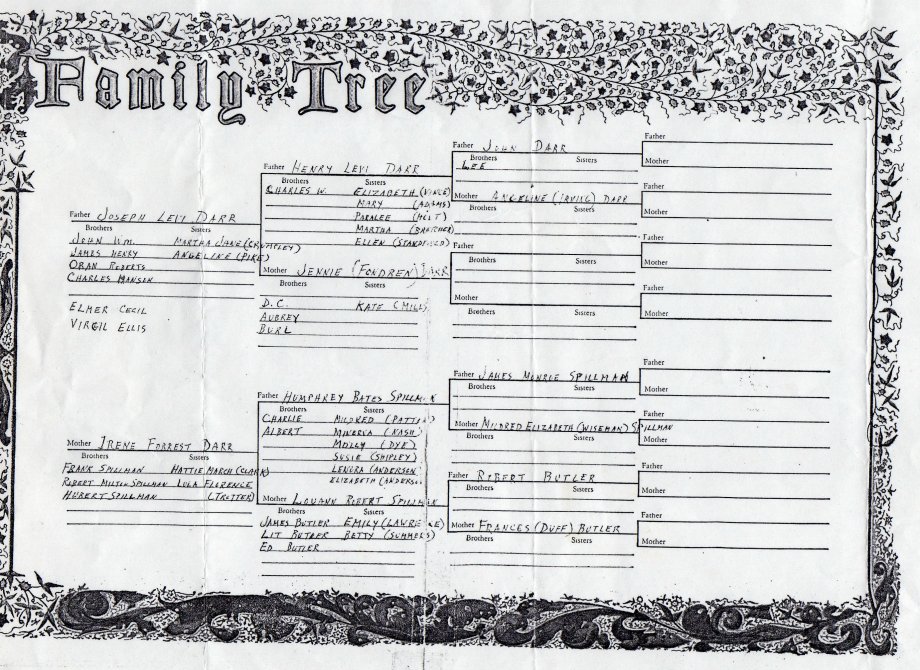 Family Tree
Father JOSEPH LEVI DARR
Brothers Sisters
JOHN WM. MARTHA JANE (CRUMPLEY)
JAMES HENRY ANGELINE (PIKE)
ORAN ROBERTS
CHARLES MANSON
ELMER CECIL
VIRGIL ELLIS
Mother IRENE FORREST DARR
Brothers Sisters
FRANK SPILLMAN HATTIE MARCH (CLARK)
ROBERT MILTON SPILLMAN LULA FLORENCE
HUBERT SPILLMAN (TROTTER)
Father HENRY LEVI DARR
Brothers Sisters
CHARLES W. ELIZABETH (VANCE)
MARY (ADAMS)
PARALEE (HOLT)
MARTHA (BRATCHER)
ELLEN (STANDFIELD)
Mother JENNIE (FONDREN) DARR
Brothers Sisters
D.C. KATE (MILLS)
AUBREY
BURL
Father HUMPHREY BATES SPILLMAN
Brothers Sisters
CHARLIE MILDRED (PATTON)
ALBERT MINERVA (NASH)
MOLLY (DYE)
SUSIE (SHIPLEY)
LENORA (ANDERSEN
ELIZABETH (ANDERSON
Mother LOUANN ROBERT SPILLMAN
Brothers Sisters
JAMES BUTLER EMILY (LAWRENCE)
LIT BUTLER BETTY (SUMMERS)
ED BUTLER
Father JOHN DARR
Brothers Sisters
LEE
Mother ANGELINE (IRVING) DARR
Brothers Sisters
Father
Brothers Sisters
Mother
Brothers Sisters
Father JAMES MONROE SPILLMAN
Brothers Sisters
Mother MILDRED ELIZABETH (WISEMAN) SPILLMAN
Brothers Sisters
Father ROBERT BUTLER
Brothers Sisters
Mother FRANCES (DUFF) BUTLER
Brothers Sisters
Father
Mother
Father
Mother
Father
Mother
Father
Mother
Father
Mother
Father
Mother
Father
Mother
Father
Mother